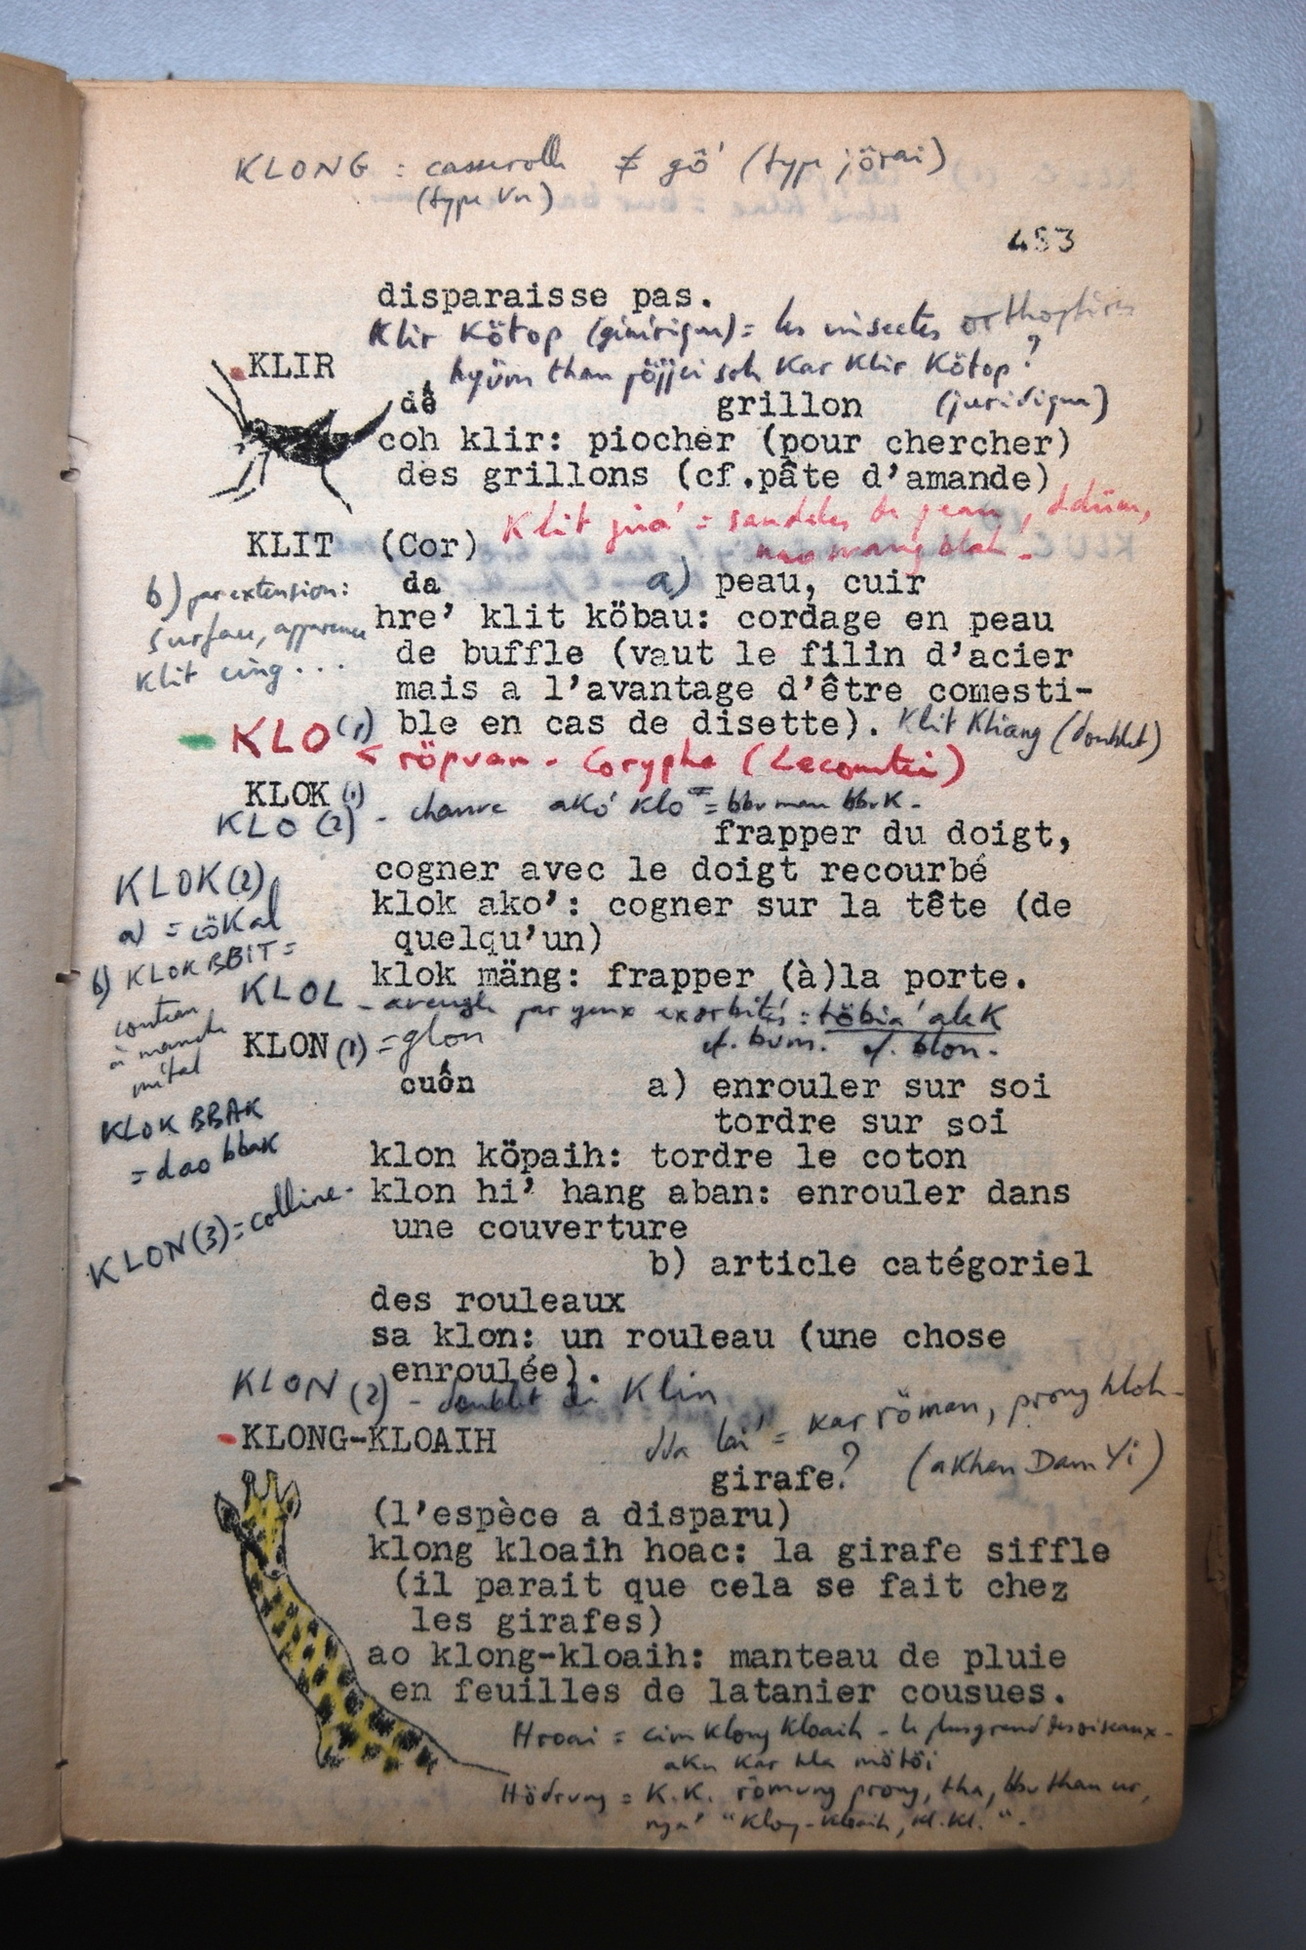 KLONG : casserolle ≠ gô' (type jörai)
(type Vn)
483
disparaisse pas.
Klir Kötop (générique) = les insectes orthoptères
KLIR
hyüm than pöjjei soh Kar Klir Kötop ?
dê grillon (juridique)
coh klir: piocher (pour chercher)
des grillons (cf.pâte d'amande)
Klit juá' = sandales de peau,
KLIT (Cor)
da a) peau, cuir
b) par extension:
surface, apparence
Klit cing...
hre' klit köbau: cordage en peau
de buffle (vaut le filin d'acier
mais a l'avantage d'être comesti-
ble en cas de disette). Klit Kliang (doublet)
KLO (1) < röpuan - Corypha (Lecomtei)
KLOK (1)
KLO (2) - chauve akó' klo =
frapper du doigt,
cogner avec le doigt recourbé
klok ako': cogner sur la tête (de
quelqu'un)
klok mäng: frapper (à)la porte.
KLOK (2)
a) = cökal
b) KLOK BBIT =
couteau
à manche
métal
KLOK BBAK
= dao bbak
KLOL - aveugle par yeux exorbités : töbia' alek
KLON (1) = glon cf. bum. cf. blon.
cuôn a) enrouler sur soi
tordre sur soi
klon köpaih: tordre le coton
KLON (3) = colline -
klon hi' hang aban: enrouler dans
une couverture
b) article catégoriel
des rouleaux
sa klon: un rouleau (une chose
enroulée).
KLON (2) - doublet de Klin
KLONG-KLOAIH
= kar röman, prong hloh -
girafe ? (akhan Dam Yi)
(l'espèce a disparu)
klong kloaih hoac: la girafe siffle
(il parait que cela se fait chez
les girafes)
ao klong-kloaih: manteau de pluie
en feuilles de latanier cousues.
Hroai = cim klong kloaih - le plus grand des oiseaux -
aku kar hla mötöi
Hödrung = K.K. römung prong, tha, bbu than ur,
nga' "Klong-kloaih, kl. kl." -